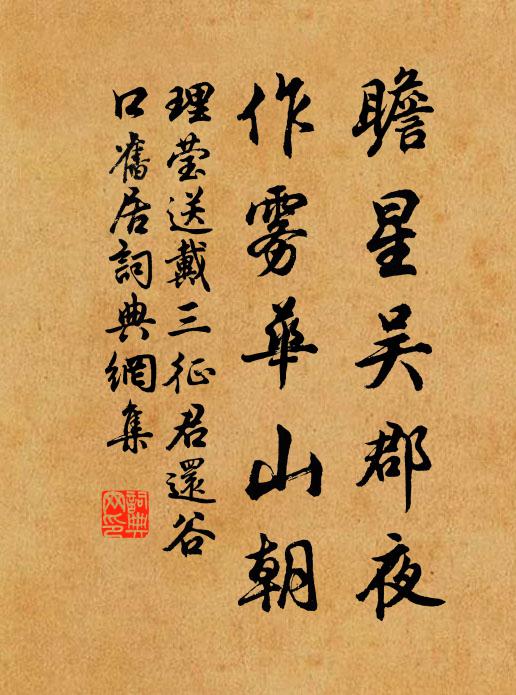 瞻星吴郡夜
作雾華山朝
理莹送戴三征君還谷
口舊居詞典網集
詞典
网印